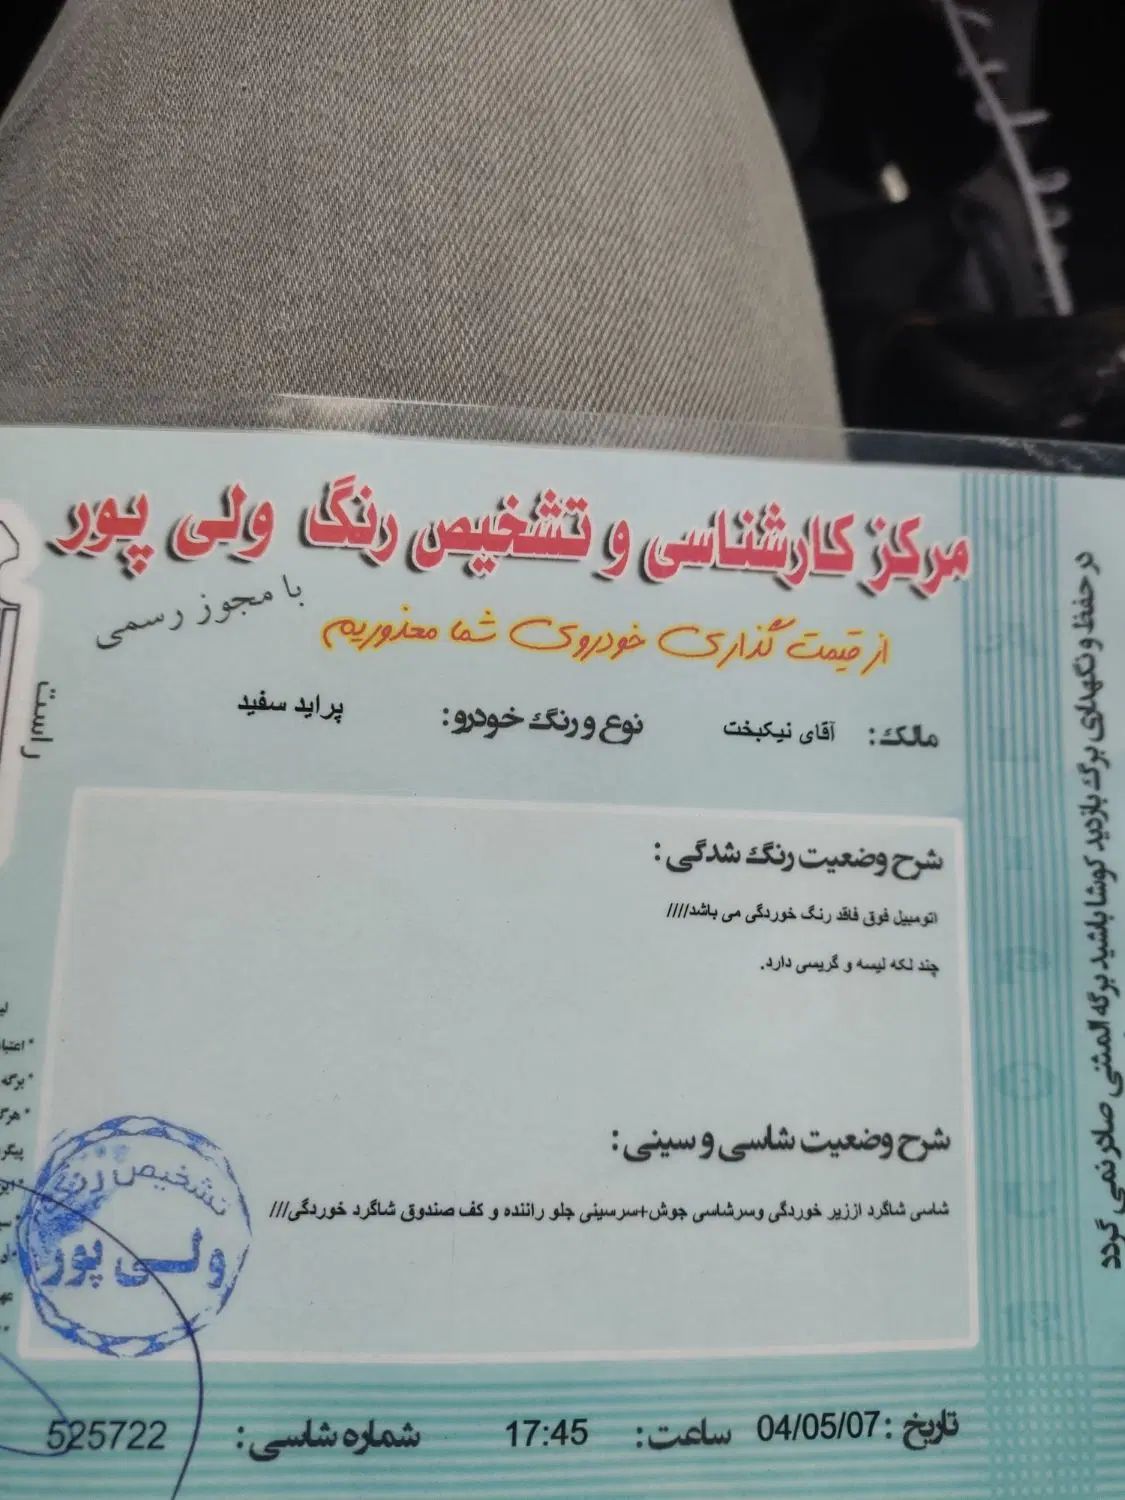 مرکز کارشناسی و تشخیص رنگ ولی پور
با مجوز رسمی
از قیمت گذاری خودروی شما معذوریم
مالک: آقای نیکبخت نوع و رنگ خودرو: پراید سفید
شرح وضعیت رنگ شدگی:
اتومبیل فوق فاقد رنگ خوردگی می باشد////
چند لکه لیسه و گریسی دارد.
شرح وضعیت شاسی و سینی:
شاسی شاگرد اززیر خوردگی وسرشاسی جوش+سرسینی جلو راننده و کف صندوق شاگرد خوردگی///
تاریخ: 04/05/07 ساعت: 17:45 شماره شاسی: 525722
تشخیص رنگ
ولی پور
در حفظ و نگهداری برگ بازدید کوشا باشید برگه المثنی صادر نمی گردد
راست
* برگه